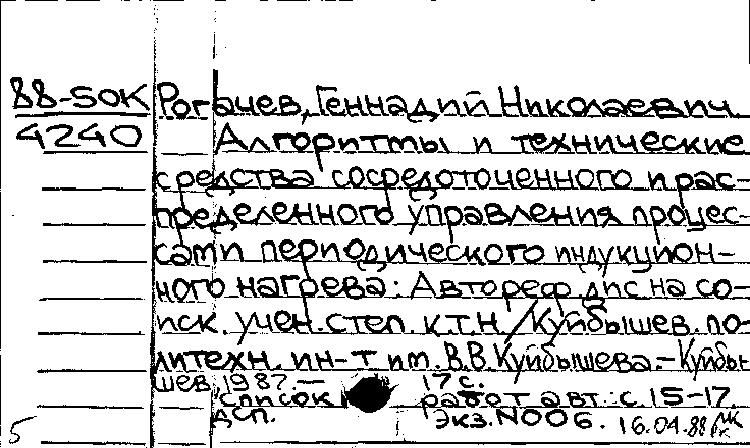 88-50К Рогачев, Геннадий Николаевич
4240 Алгоритмы и технические
средства сосредоточенного и рас-
пределенного управления процес-
сами периодического индукцион-
ного нагрева: Автореф. дис. на со-
иск. учен. степ. к.т.н. / Куйбышев. по-
литехн. ин-т им. В.В. Куйбышева. – Куйбы-
шев, 1987. – 17 с.
Список работ авт.: с. 15-17.
ДСП. Экз. N006. 16.01.88
5